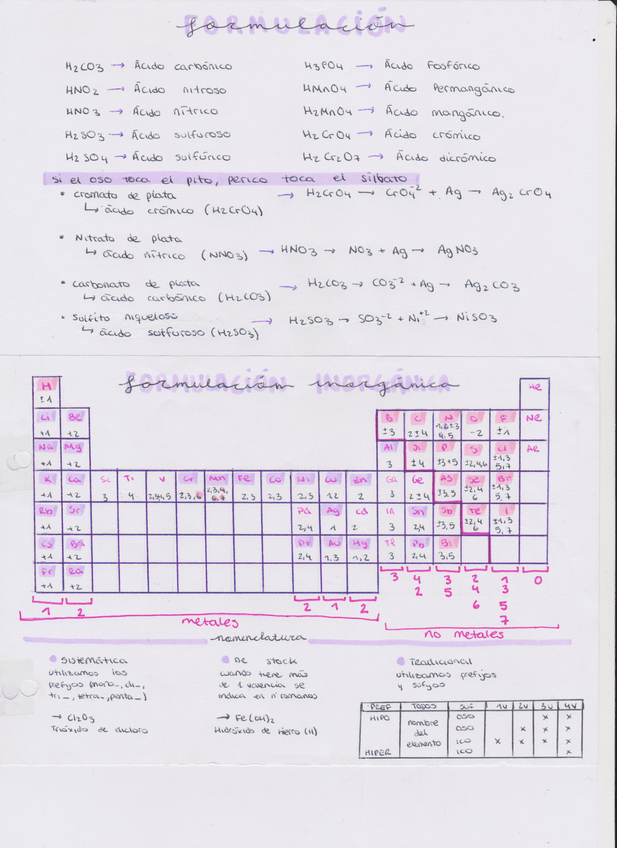 FORMULACIÓN
formulación
H2CO3 → Ácido carbónico
H3PO4 → Ácido Fosfórico
HNO2 → Ácido nitroso
HMnO4 → Ácido Permangánico
HNO3 → Ácido nítrico
H2MnO4 → Ácido mangánico.
H2SO3 → Ácido sulfuroso
H2CrO4 → Ácido crómico
H2SO4 → Ácido sulfúrico
H2Cr2O7 → Ácido dicrómico
si el oso toca el pito, perico toca el silbato
• cromato de plata → H2CrO4 → CrO4-2 + Ag → Ag2CrO4
↳ ácido crómico (H2CrO4)
• Nitrato de plata
↳ ácido nítrico (NNO3) → HNO3 → NO3 + Ag → AgNO3
• carbonato de plata → H2CO3 → CO3-2 + Ag → Ag2CO3
↳ ácido carbónico (H2CO3)
• sulfito niqueloso → H2SO3 → SO3-2 + Ni+2 → NiSO3
↳ ácido solfuroso (H2SO3)
FORMULACIÓN INORGÁNICA
formulación inorgánica
H He
±1
Li Be B C N O F Ne
+1 +2 ±3 2±4 -2 ±1
Na Mg Al Si P S Cl Ar
+1 +2 3 ±4 ±3+5 ±2,4,6 ±1,3 5,7
K Ca Sc Ti V Cr Mn Fe Co Ni Cu Zn Ga Ge AS Se Br
+1 +2 3 4 2,3,4,5 2,3,6 2,3,4, 6,7 2,3 2,3 2,3 1,2 2 3 2±4 ±3,5 ±2,4 6 ±1,3 5,7
Rb Sr Pd Ag Cd In Sn Sb Te I
+1 +2 2,4 1 2 3 2,4 ±3,5 ±2,4 6 ±1,3 5,7
Cs Ba Pt Au Hg Tl Pb Bi
+1 +2 2,4 1,3 1,2 3 2,4 3,5
Fr Ra
+1 +2
1 2 2 1 2 3 4 2 3 5 2 4 6 1 3 5 7 0
metales
no metales
nomenclatura
• Sistemática
utilizamos los
prefijos (mono_, di_,
tri_, tetra_, penta_)
→ Cl2O3
Trióxido de dicloro
• De stock
cuando tiene más
de 1 valencia se
indica en nº romanos
→ Fe(OH)2
Hidróxido de hierro (II)
• Tradicional
utilizamos prefijos
y sufijos
PREF TODOS SUF 1V 2V 3V 4V
HIPO nombre del elemento OSO x x
OSO x x x
ICO x x x x
HIPER ICO x